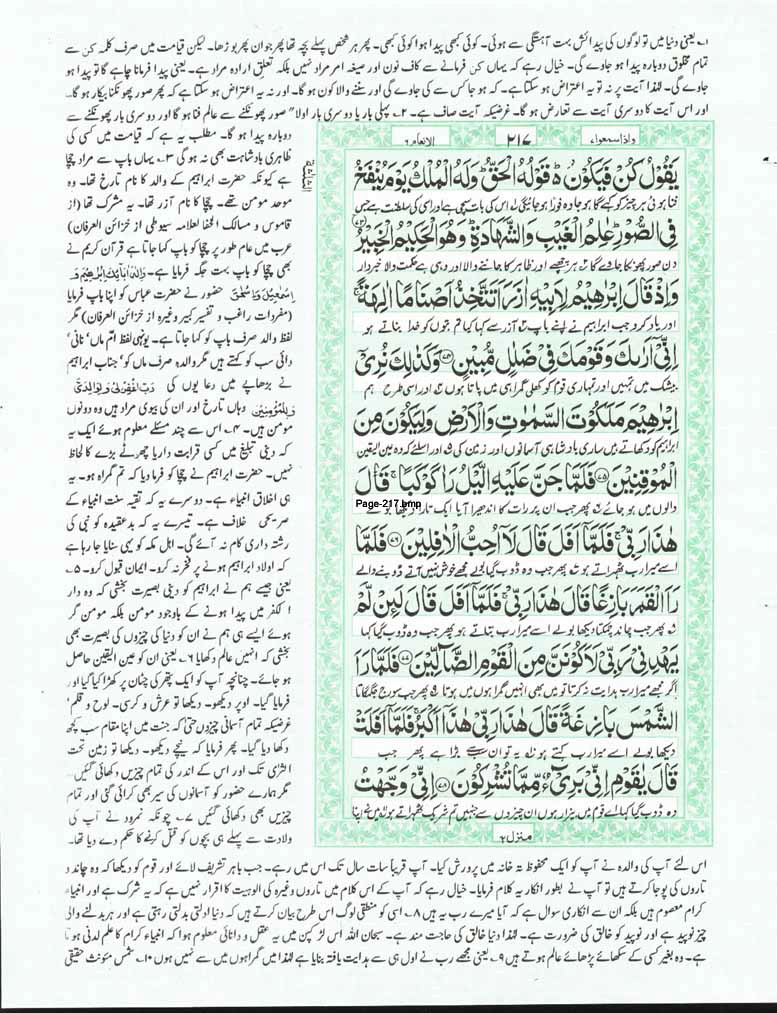 ۱۔ یعنی دنیا میں تو لوگوں کی پیدائش بہت آہستگی سے ہوئی۔ کوئی کبھی پیدا ہوا کوئی کبھی۔ پھر ہر شخص پہلے بچہ تھا پھر جوان پھر بوڑھا۔ لیکن قیامت میں صرف کلمہ کن سے
تمام مخلوق دوبارہ پیدا ہو جاوے گی۔ خیال رہے کہ یہاں کن فرمانے سے کاف نون اور صیغہ امر مراد نہیں بلکہ تعلق ارادہ مراد ہے۔ یعنی پیدا فرمانا چاہے گا تو پیدا ہو
جاوے گی۔ لہٰذا آیت پر نہ تو یہ اعتراض ہو سکتا ہے۔ کہ ہو جا کس سے کی جاوے گی اور سننے والا کون ہو گا۔ اور نہ یہ اعتراض ہو سکتا ہے کہ پھر صور پھونکنا بیکار ہو گا۔
اور اس آیت کا دوسری آیت سے تعارض ہو گا۔ غرضیکہ آیت صاف ہے۔ ۲۔ پہلی بار یا دوسری بار اولاً صور پھونکنے سے عالم فنا ہو گا اور دوسری بار پھونکنے سے
دوبارہ پیدا ہو گا۔ مطلب یہ ہے کہ قیامت میں کسی کی
ظاہری بادشاہت بھی نہ ہو گی ۳۔ یہاں باپ سے مراد چچا
ہے کیونکہ حضرت ابراہیم کے والد کا نام تارخ تھا۔ وہ
موحد مومن تھے۔ چچا کا نام آزر تھا۔ یہ مشرک تھا (از
قاموس و مسالک الحنفا لعلامہ سیوطی از خزائن العرفان)
عرب میں عام طور پر چچا کو باپ کہا جاتا ہے قرآن کریم نے
بھی چچا کو باپ بہت جگہ فرمایا ہے۔ وَاِلٰهَ اٰبَآئِكَ اِبْرٰهِيْمَ وَ
اِسْمٰعِيْلَ وَاِسْحٰقَ حضور نے حضرت عباس کو اپنا باپ فرمایا
(مفردات راغب و تفسیر کبیر وغیرہ از خزائن العرفان) مگر
لفظ والد صرف باپ کو کہا جاتا ہے۔ یونہی لفظ ام ماں‘ نانی‘
دائی سب کو کہتے ہیں مگر والدہ صرف ماں کو‘ جناب ابراہیم
نے بڑھاپے میں دعا یوں کی رَبِّ اغْفِرْلِيْ وَلِوَالِدَيَّ
وَلِلْمُؤْمِنِيْنَ وہاں تارخ اور ان کی بیوی مراد ہیں وہ دونوں
مومن ہیں۔ ۴۔ اس سے چند مسئلے معلوم ہوئے ایک یہ
کہ دینی تبلیغ میں کسی قرابت دار یا چھوٹے بڑے کا لحاظ
نہیں۔ حضرت ابراہیم نے چچا کو فرما دیا کہ تم گمراہ ہو۔ یہ
ہی اخلاق انبیاء ہے۔ دوسرے یہ کہ تقیہ سنت انبیاء کے
صریحی خلاف ہے۔ تیسرے یہ کہ بدعقیدہ کو نبی کی
رشتہ داری کام نہ آئے گی۔ اہل مکہ کو یہی سنایا جا رہا ہے
کہ اولاد ابراہیم ہونے پر فخر نہ کرو۔ ایمان قبول کرو۔ ۵۔
یعنی جیسے ہم نے ابراہیم کو دینی بصیرت بخشی کہ وہ دار
الکفر میں پیدا ہونے کے باوجود مومن بلکہ مومن گر
ہوئے ایسے ہی ہم نے ان کو دنیا کی چیزوں کی بصیرت بھی
بخشی کہ انہیں عالم دکھایا ۶۔ یعنی ان کو عین الیقین حاصل
ہو جائے۔ چنانچہ آپ کو ایک پتھر کی چٹان پر کھڑا کیا گیا اور
فرمایا گیا۔ اوپر دیکھو۔ دیکھا تو عرش و کرسی۔ لوح و قلم‘
غرضیکہ تمام آسمانی چیزوں حتیٰ کہ جنت میں اپنا مقام سب کچھ
دکھا دیا گیا۔ پھر فرمایا کہ نیچے دیکھو۔ دیکھا تو زمین تحت
الثریٰ تک اور اس کے اندر کی تمام چیزیں دکھائی گئیں۔
مگر ہمارے حضور کو آسمانوں کی سیر بھی کرائی گئی اور تمام
چیزیں بھی دکھائی گئیں ۷۔ چونکہ نمرود نے آپ کی
ولادت سے پہلے ہی بچوں کو قتل کرنے کا حکم دے دیا تھا۔
واذا سمعوا ۷ ۲۱۷ الانعام ۶
الثلثة
يَقُوْلُ كُنْ فَيَكُوْنُ ؕ قَوْلُهُ الْحَقُّ ؕ وَلَهُ الْمُلْكُ يَوْمَ يُنْفَخُ
فنا ہوئی ہر چیز کو کہے گا ہو جا وہ فوراً ہو جائیگی ۱ اس کی بات سچی ہے اور اسی کی سلطنت ہے جس
فِي الصُّوْرِ ؕ عٰلِمُ الْغَيْبِ وَالشَّهَادَةِ ؕ وَهُوَ الْحَكِيْمُ الْخَبِيْرُ
دن صور پھونکا جاوے گا ۲ ہر چھپے اور ظاہر کا جاننے والا اور وہی ہے حکمت والا خبردار
وَاِذْ قَالَ اِبْرٰهِيْمُ لِاَبِيْهِ اٰزَرَ اَتَتَّخِذُ اَصْنَامًا اٰلِهَةً ۚ
اور یاد کرو جب ابراہیم نے اپنے باپ ۳ آزر سے کہا کیا تم بتوں کو خدا بناتے ہو
اِنِّيْٓ اَرٰىكَ وَقَوْمَكَ فِيْ ضَلٰلٍ مُّبِيْنٍ ۷۴ وَكَذٰلِكَ نُرِيْٓ
بیشک میں تمہیں اور تمہاری قوم کو کھلی گمراہی میں پاتا ہوں ۴ اور اسی طرح ہم
اِبْرٰهِيْمَ مَلَكُوْتَ السَّمٰوٰتِ وَالْاَرْضِ وَلِيَكُوْنَ مِنَ
ابراہیم کو دکھاتے ہیں ساری بادشاہی آسمانوں اور زمین کی ۵ اور اسلئے کہ وہ عین الیقین
الْمُوْقِنِيْنَ ۷۵ فَلَمَّا جَنَّ عَلَيْهِ الَّيْلُ رَاٰ كَوْكَبًا ۚ قَالَ
والوں میں ہو جائے ۶ پھر جب ان پر رات کا اندھیرا آیا ایک تارا دیکھا بولے
Page-217.bmp
هٰذَا رَبِّيْ ۚ فَلَمَّآ اَفَلَ قَالَ لَآ اُحِبُّ الْاٰفِلِيْنَ ۷۶ فَلَمَّا
اسے میرا رب ٹھہراتے ہو ۷ پھر جب وہ ڈوب گیا بولے مجھے خوش نہیں آتے ڈوبنے والے
رَاَ الْقَمَرَ بَازِغًا قَالَ هٰذَا رَبِّيْ ۚ فَلَمَّآ اَفَلَ قَالَ لَئِنْ لَّمْ
۸ پھر جب چاند چمکتا دیکھا بولے اسے میرا رب بتاتے ہو پھر جب وہ ڈوب گیا کہا
يَهْدِنِيْ رَبِّيْ لَاَكُوْنَنَّ مِنَ الْقَوْمِ الضَّآلِّيْنَ ۷۷ فَلَمَّا رَاَ
اگر مجھے میرا رب ہدایت نہ کرتا تو میں بھی انہیں گمراہوں میں ہوتا ۹ پھر جب سورج جگمگاتا
الشَّمْسَ بَازِغَةً قَالَ هٰذَا رَبِّيْ هٰذَآ اَكْبَرُ ۚ فَلَمَّآ اَفَلَتْ
دیکھا بولے اسے میرا رب کہتے ہو ۱۰ یہ تو ان سب سے بڑا ہے پھر جب
قَالَ يٰقَوْمِ اِنِّيْ بَرِيْٓءٌ مِّمَّا تُشْرِكُوْنَ ۷۸ اِنِّيْ وَجَّهْتُ
وہ ڈوب گیا کہا اے قوم میں بیزار ہوں ان چیزوں سے جنہیں تم شریک ٹھہراتے ہو میں نے اپنا
منزل ۲
اس لئے آپ کی والدہ نے آپ کو ایک محفوظ تہ خانہ میں پرورش کیا۔ آپ قریباً سات سال تک اس میں رہے۔ جب باہر تشریف لائے اور قوم کو دیکھا کہ وہ چاند و
تاروں کی پوجا کرتے ہیں تو آپ نے بطور انکار یہ کلام فرمایا۔ خیال رہے کہ آپ کے اس کلام میں تاروں وغیرہ کی الوہیت کا اقرار نہیں ہے کہ یہ شرک ہے اور انبیاء
کرام معصوم ہیں بلکہ ان سے انکاری سوال ہے کہ آیا میرے رب یہ ہیں ۸۔ اسی کو منطقی لوگ اس طرح بیان کرتے ہیں کہ دنیا ادلتی بدلتی رہتی ہے اور ہر بدلنے والی
چیز نوپید ہے اور نوپید کو خالق کی ضرورت ہے۔ لہٰذا دنیا خالق کی حاجت مند ہے۔ سبحان اللہ اس لڑکپن میں یہ عقل و دانائی معلوم ہوا کہ انبیاء کرام کا علم لدنی ہوتا
ہے۔ وہ بغیر کسی کے سکھائے پڑھائے عالم ہوتے ہیں ۹۔ یعنی مجھے رب نے اول ہی سے ہدایت یافتہ بنایا ہے لہٰذا میں گمراہوں میں سے نہیں ہوں ۱۰۔ شمس مؤنث حقیقی